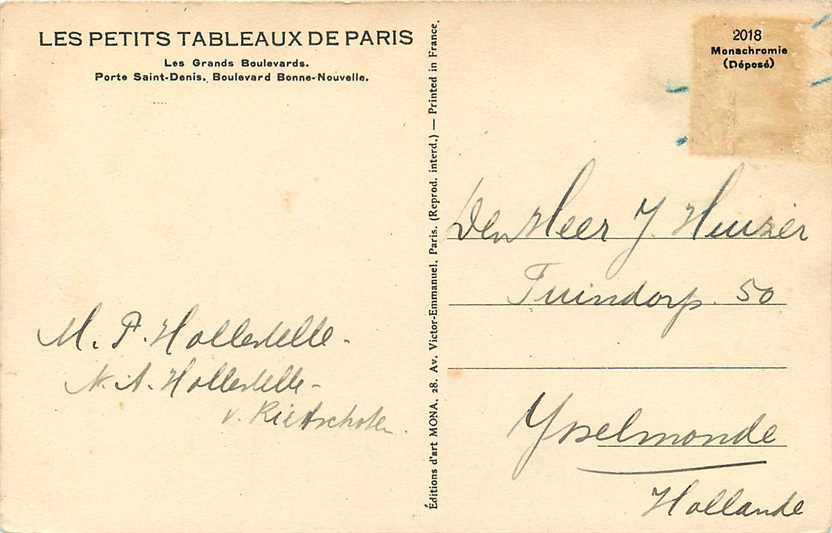 LES PETITS TABLEAUX DE PARIS
Les Grands Boulevards.
Porte Saint-Denis. Boulevard Bonne-Nouvelle.
M. P. Hollestelle -
N. A. Hollestelle -
v. Rietschoten.
Éditions d'art MONA, 28, Av. Victor-Emmanuel, Paris. (Reprod. interd.) — Printed in France.
2018
Monachromie
(Déposé)
Den Heer J. Huizer
Tuindorp. 50
Ysselmonde
Hollande